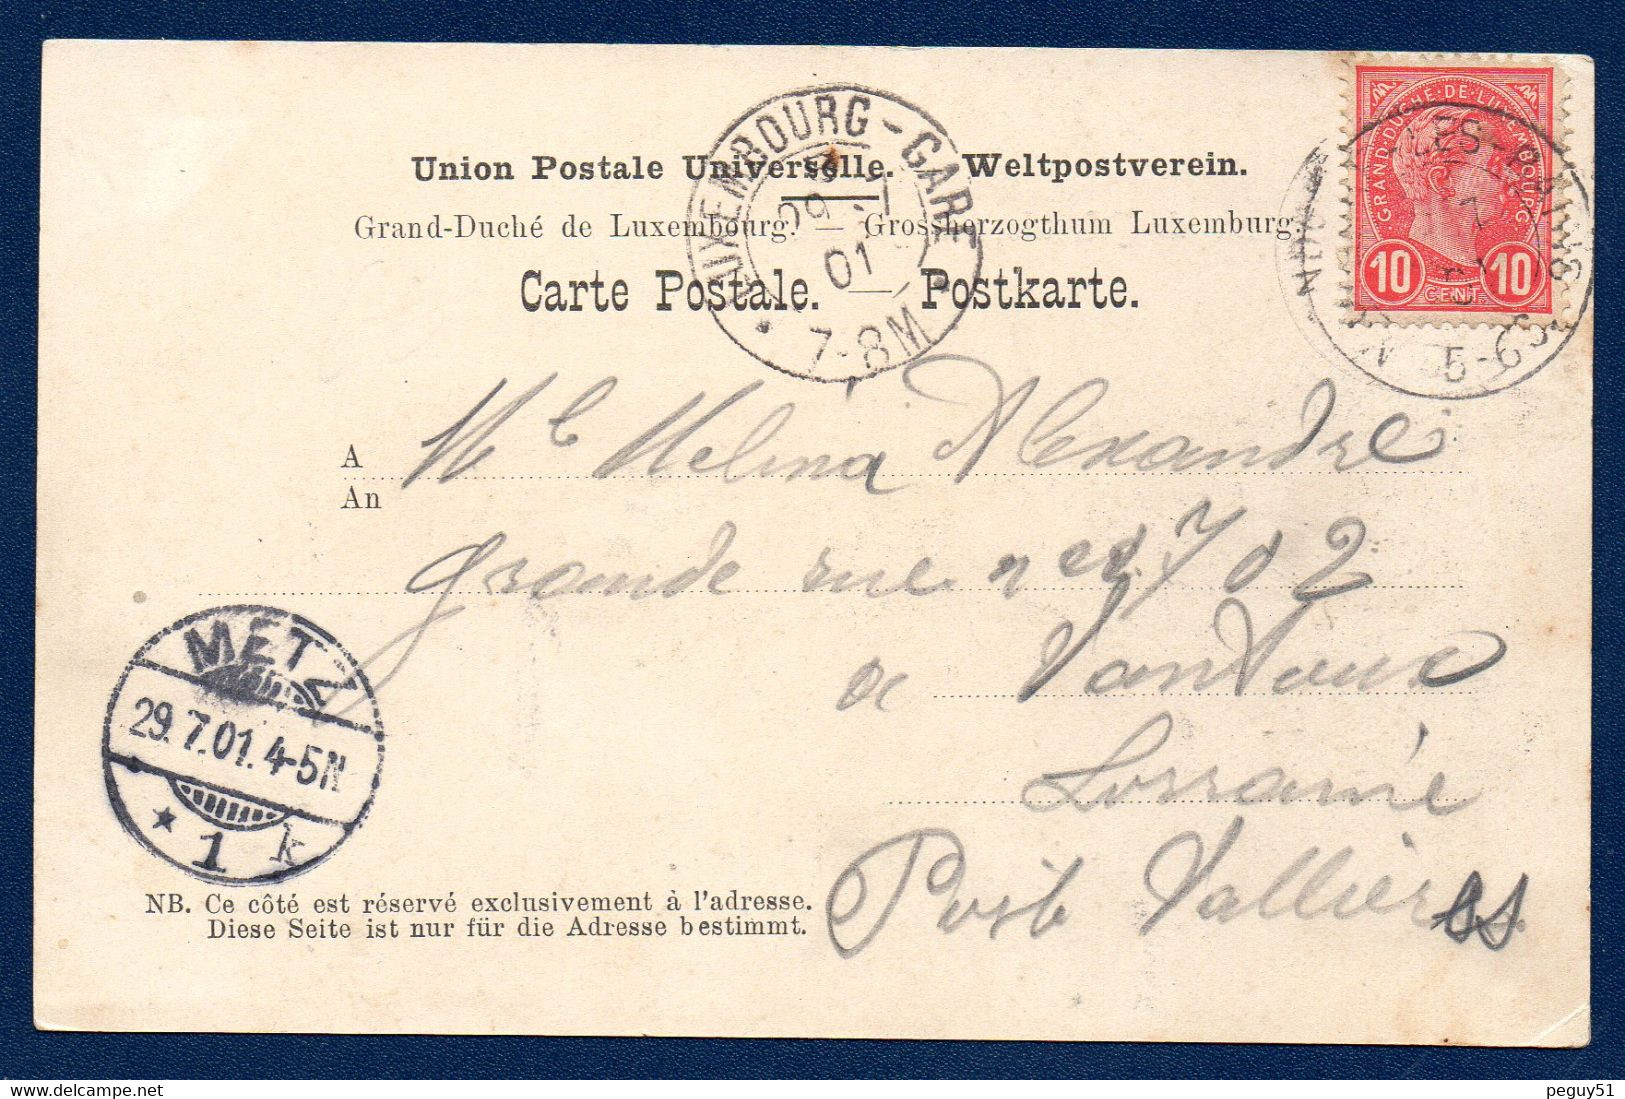 Union Postale Universelle. Weltpostverein.
Grand-Duché de Luxembourg. — Grossherzogthum Luxemburg.
Carte Postale. — Postkarte.
LUXEMBOURG-GARE
29 7
01
7-8M
GRAND-DUCHÉ-DE-LUXEMBOURG
10 CENT. 10
MONDORF-LES-BAINS
7
5-6S
A
An
Melina Alexandre
grande rue 702
Vantoux
Lorraine
Post Vallières
METZ
29.7.01. 4-5N
* 1 k
NB. Ce côté est réservé exclusivement à l'adresse.
Diese Seite ist nur für die Adresse bestimmt.
peguy51